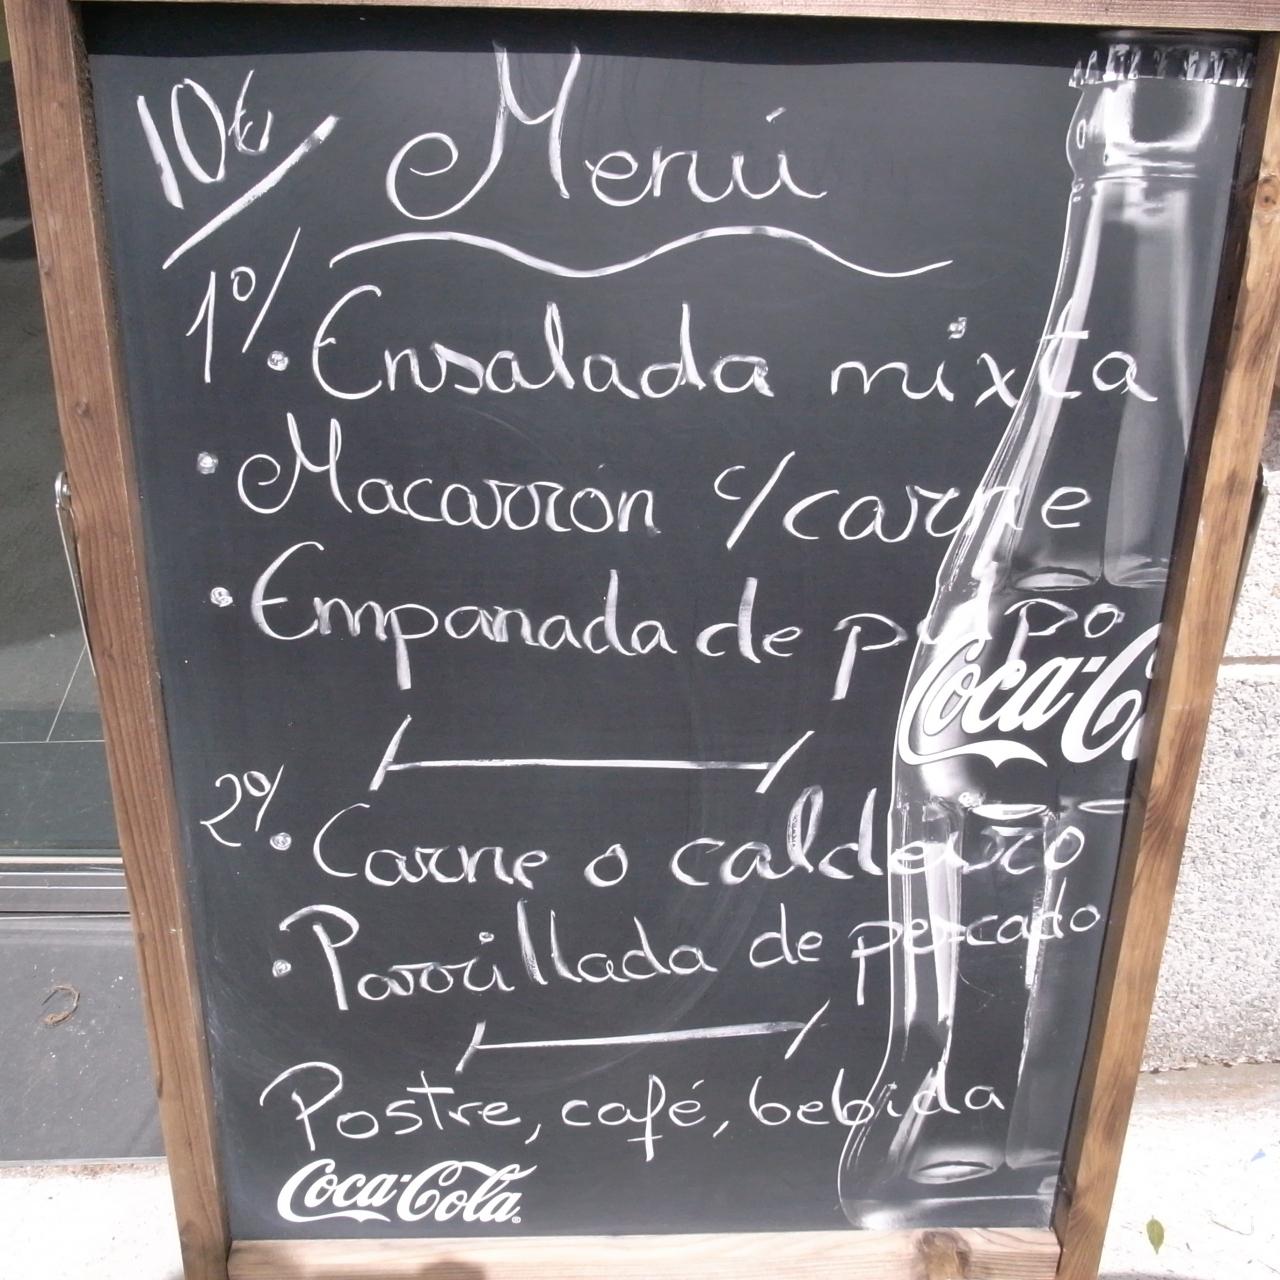 10€ Menú
1º/ • Ensalada mixta
• Macarrón c/carne
• Empanada de pulpo
Coca-C
2º/ • Carne o caldeiro
• Parrillada de pescado
Postre, café, bebida
Coca-Cola